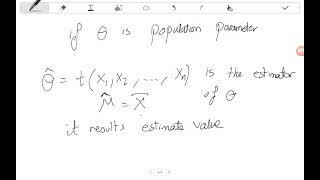 if θ is population parameter
θ̂ = t(x₁, x₂, ..., xₙ) is the estimator of θ
μ̂ = x̄
it results estimate value